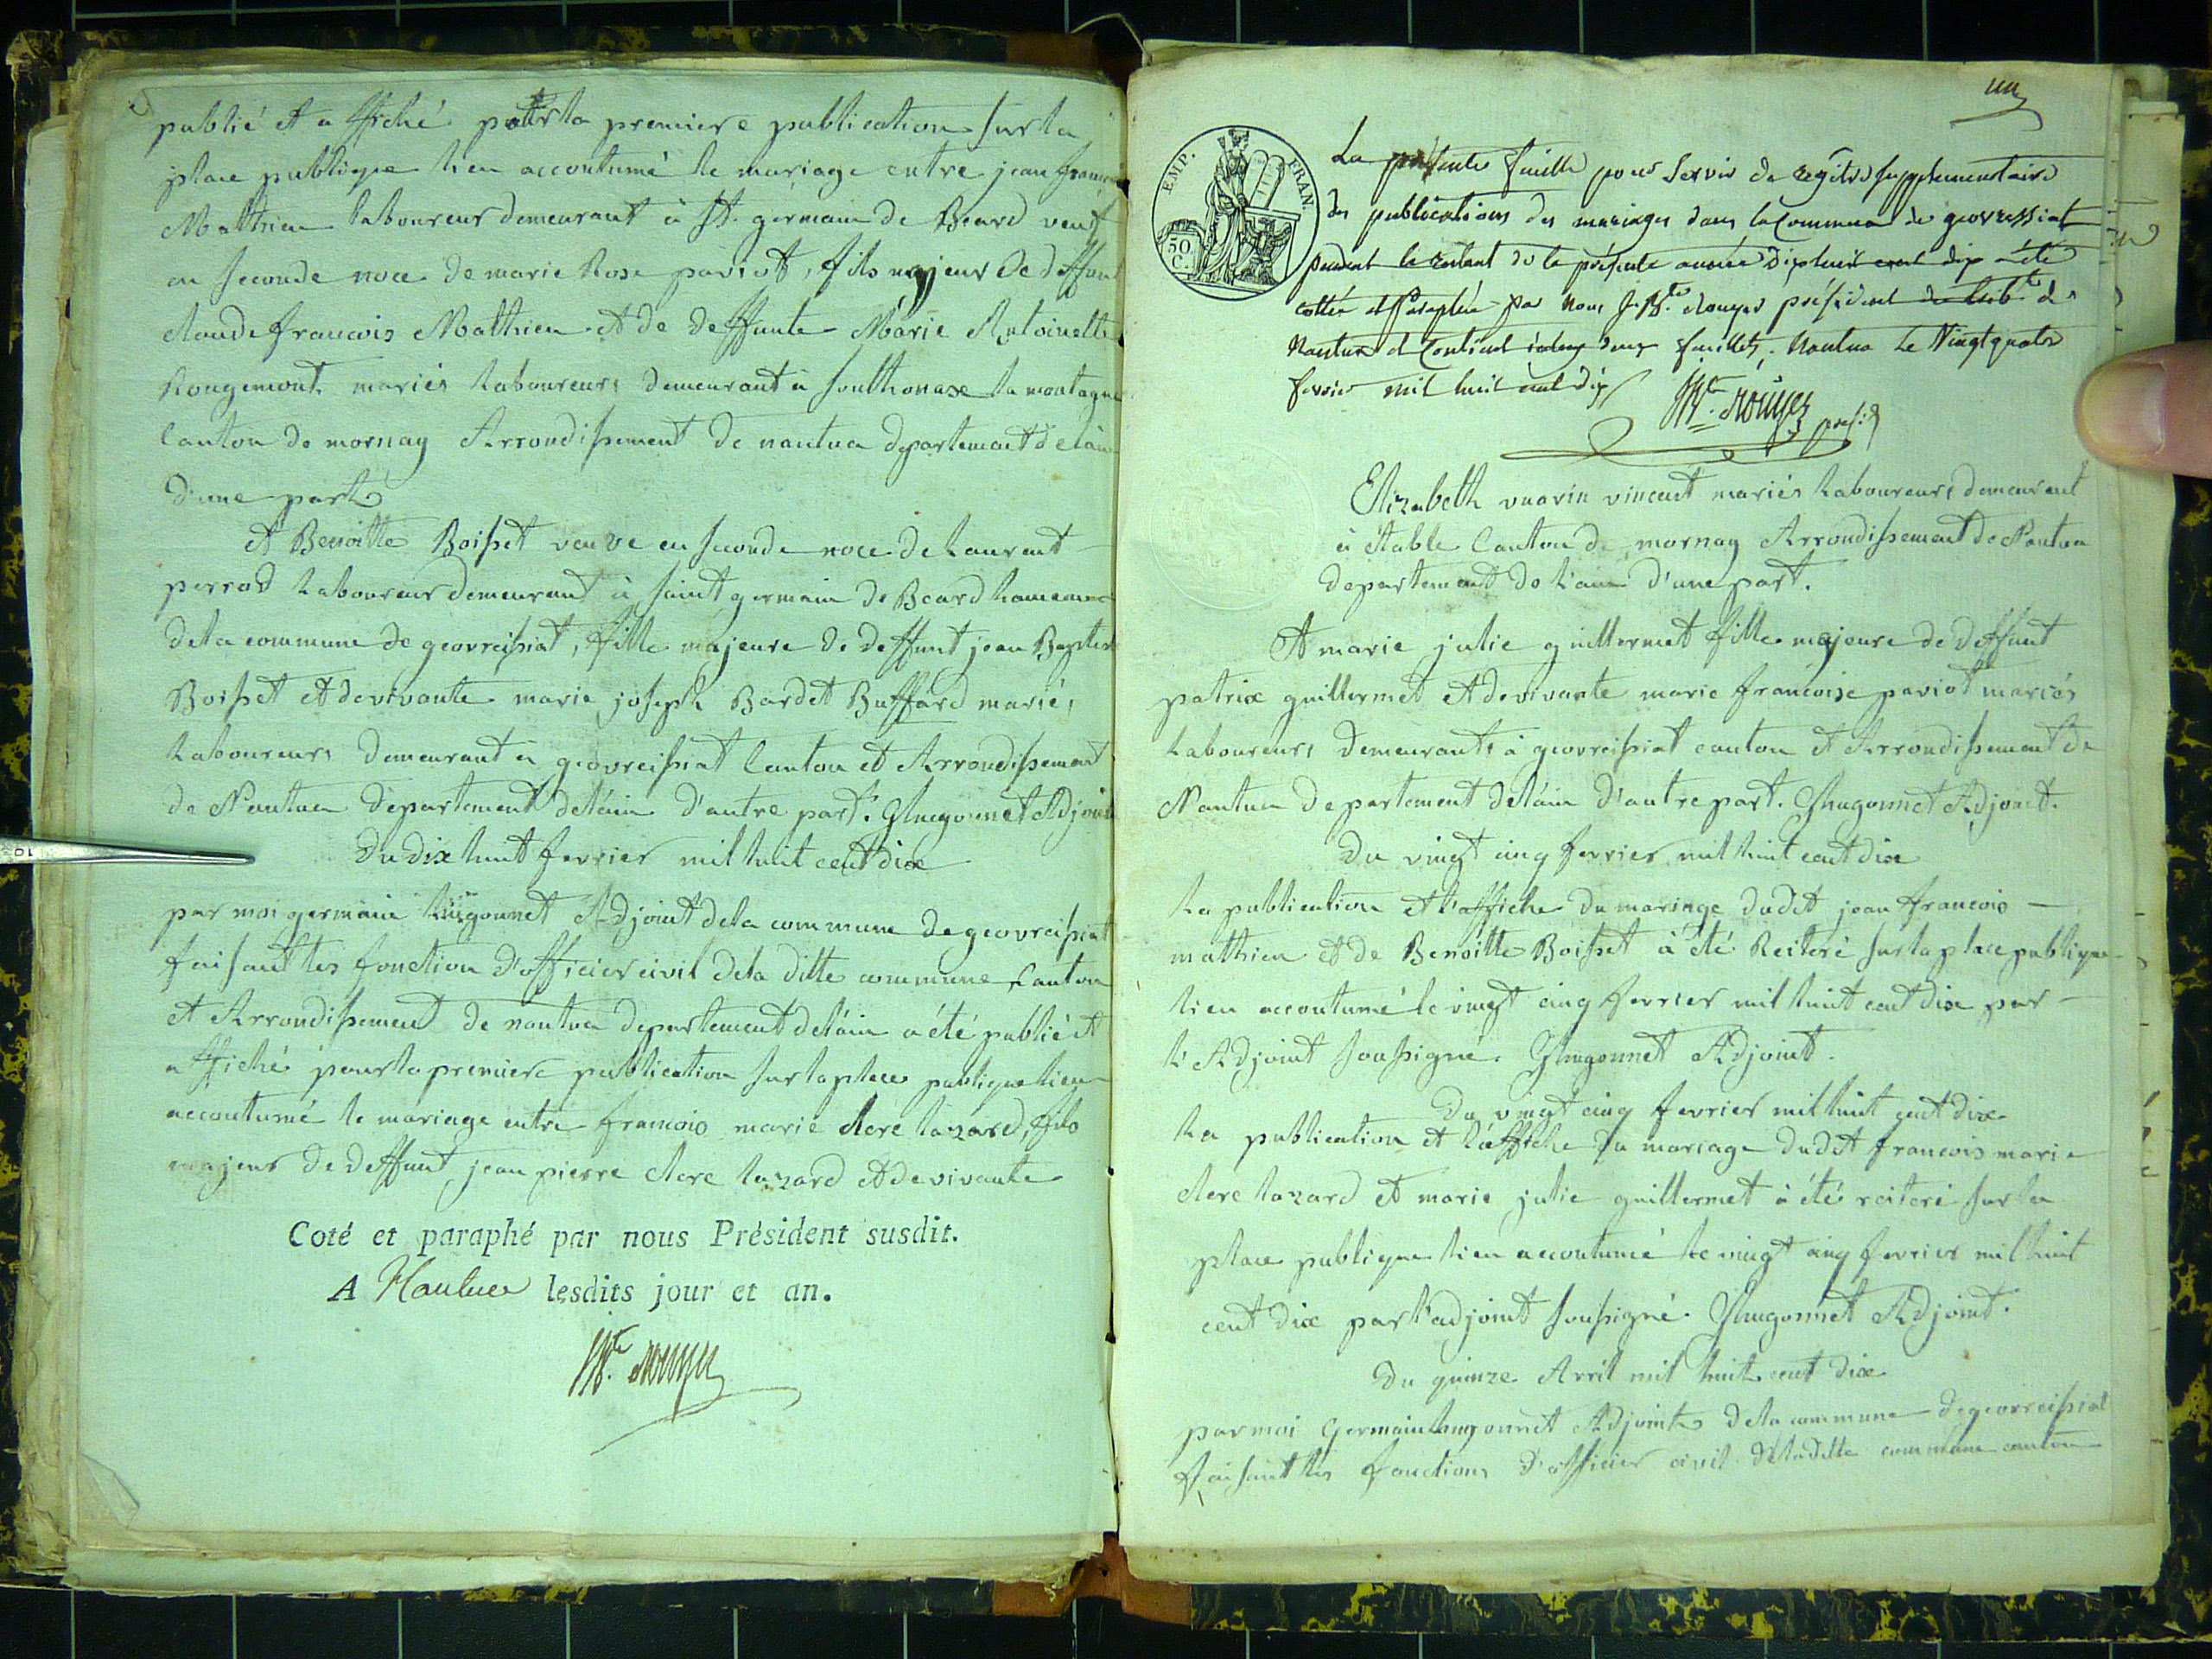 publié et affiché pour la premiere publication sur la
place publique lieu accoutumé le mariage entre jean francois
Mathieu laboureur demeurant à St. germain de Beard veuf
en seconde noce de marie Rose paviot, fils majeur de deffunt
claude francois Mathieu et de deffunte Marie Antoinette
Rougemont mariés laboureurs demeurant à soulthonax la montagne
Canton de mornay Arrondissement de nantua departement de l'ain
d'une part
et Benoitte Boisset veuve en seconde noce de Laurent
perrod laboureur demeurant à saint germain de Beard hameau
de la commune de geovreissiat, fille majeure de deffunt jean Baptiste
Boisset et de vivante marie joseph Bardet Buffard mariés
laboureurs demeurant à geovreissiat Canton et Arrondissement
de Nantua departement de l'ain d'autre part. Glugonnet Adjoint
Du dix huit fevrier mil huit cent dix
par moi germain lugonnet Adjoint de la commune de geovreissiat
faisant les fonction d'officier civil de la ditte commune Canton
et Arrondissement de nantua departement de l'ain a été publié et
affiché pour la premiere publication sur la place publique lieu
accoutumé le mariage entre francois marie clerc lazard, fils
majeur de deffunt jean pierre clerc lazard et de vivante
Coté et paraphé par nous Président susdit.
A Nantua lesdits jour et an.
un
EMP. FRAN.
50 C.
La présente feuille pour servir de regitre supplementaire
des publications des mariages dans la Commune de geovressiat
pendant le restant de la présente année dixhuit cent dix a été
cottée et Paraphée par nous J. Bte. Rouyer président du trib. de
Nantua et Contient deux feuillets. Nantua Le Vingt quatre
fevrier mil huit cent dix
Bte. Rouyer présid.
Elizabeth vuarin vincent mariés laboureurs demeurant
à étable Canton de mornay Arrondissement de Nantua
departement de l'ain d'une part.
Et marie julie guillermet fille majeure de deffunt
patrix guillermet et de vivante marie francoise paviot mariés
laboureurs demeurants à geovreissiat canton et Arrondissement de
Nantua departement de l'ain d'autre part. Glugonnet Adjoint.
Du vingt cinq fevrier mil huit cent dix
la publication et l'affiche du mariage dudit jean francois
mathieu et de Benoitte Boisset à été Reiteré sur la place publique
lieu accoutumé le vingt cinq fevrier mil huit cent dix par
l'Adjoint soussigné. Glugonnet Adjoint.
Du vingt cinq fevrier mil huit cent dix
la publication et l'affiche du mariage dudit francois marie
clerc lazard et marie julie guillermet à été reiteré sur la
place publique lieu accoutumé le vingt cinq fevrier mil huit
cent dix par l'adjoint soussigné. Glugonnet Adjoint.
Du quinze Avril mil huit cent dix
par moi germain lugonnet Adjoint de la commune de geovreissiat
faisant les fonctions d'officier civil de la ditte commune canton